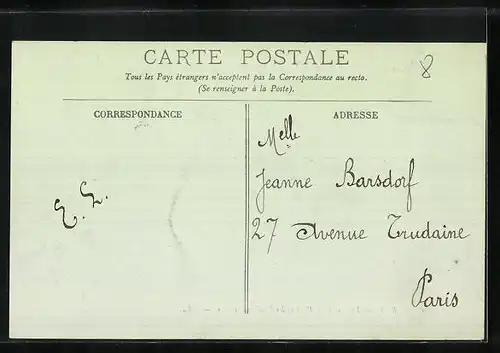 CARTE POSTALE
8
Tous les Pays étrangers n'acceptent pas la Correspondance au recto.
(Se renseigner à la Poste).
CORRESPONDANCE
ADRESSE
Melle
Jeanne Barsdorf
27 Avenue Trudaine
Paris